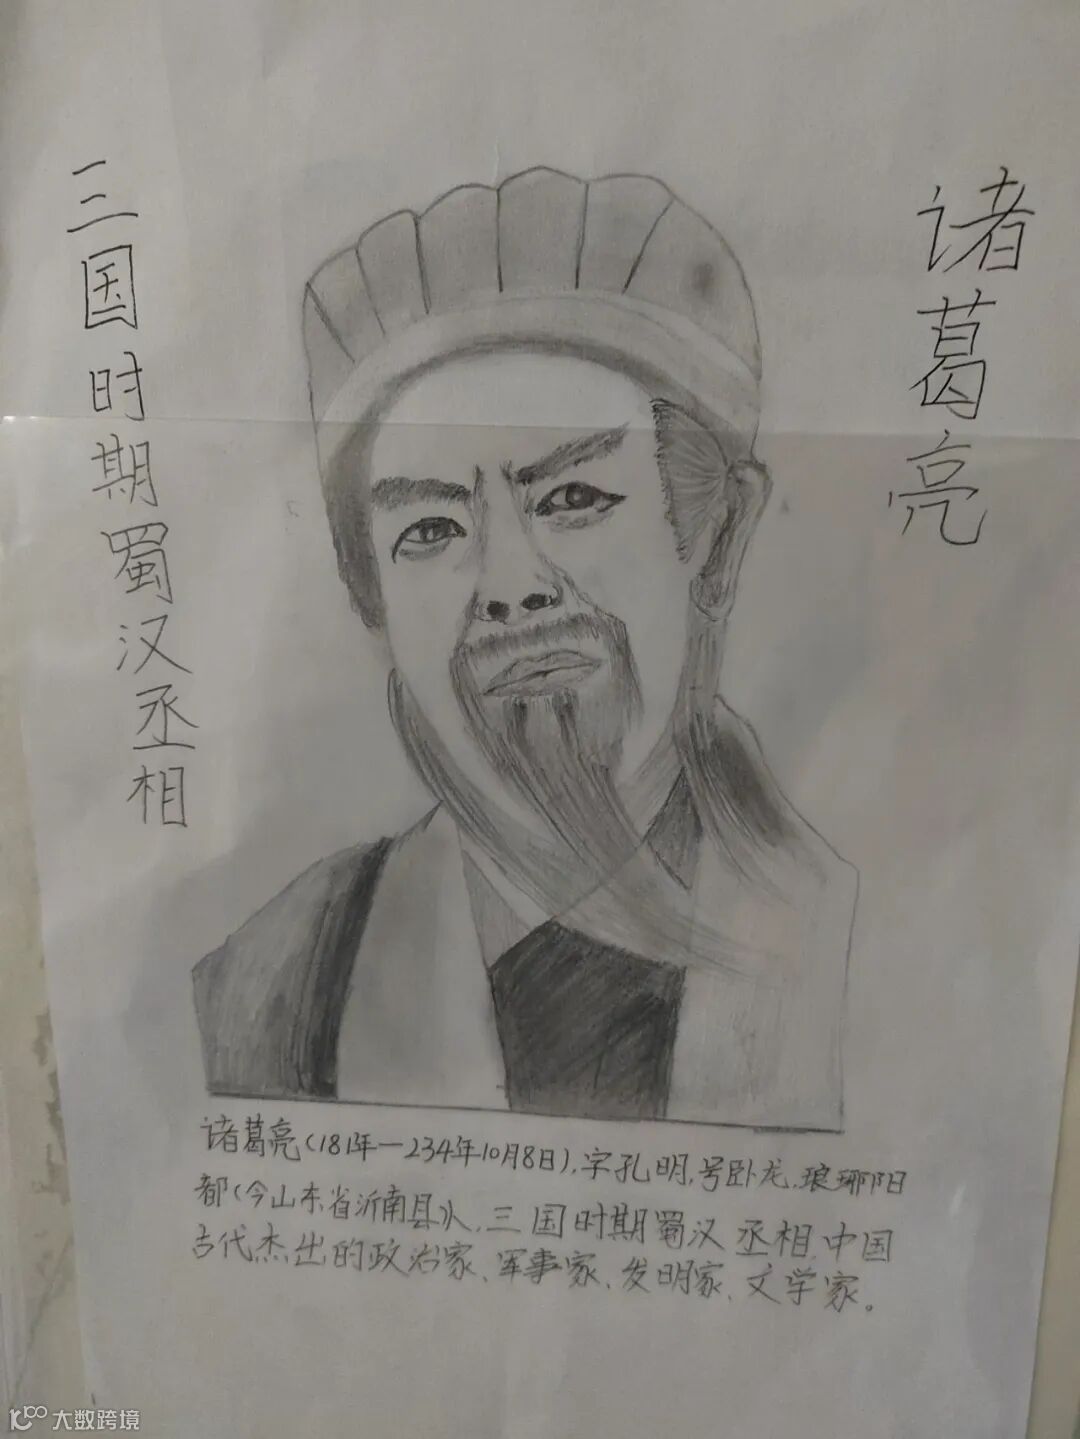 诸葛亮
三国时期蜀汉丞相
诸葛亮(181年—234年10月8日),字孔明,号卧龙,琅琊阳
都(今山东省沂南县)人,三国时期蜀汉丞相,中国
古代杰出的政治家、军事家、发明家、文学家。
大数跨境